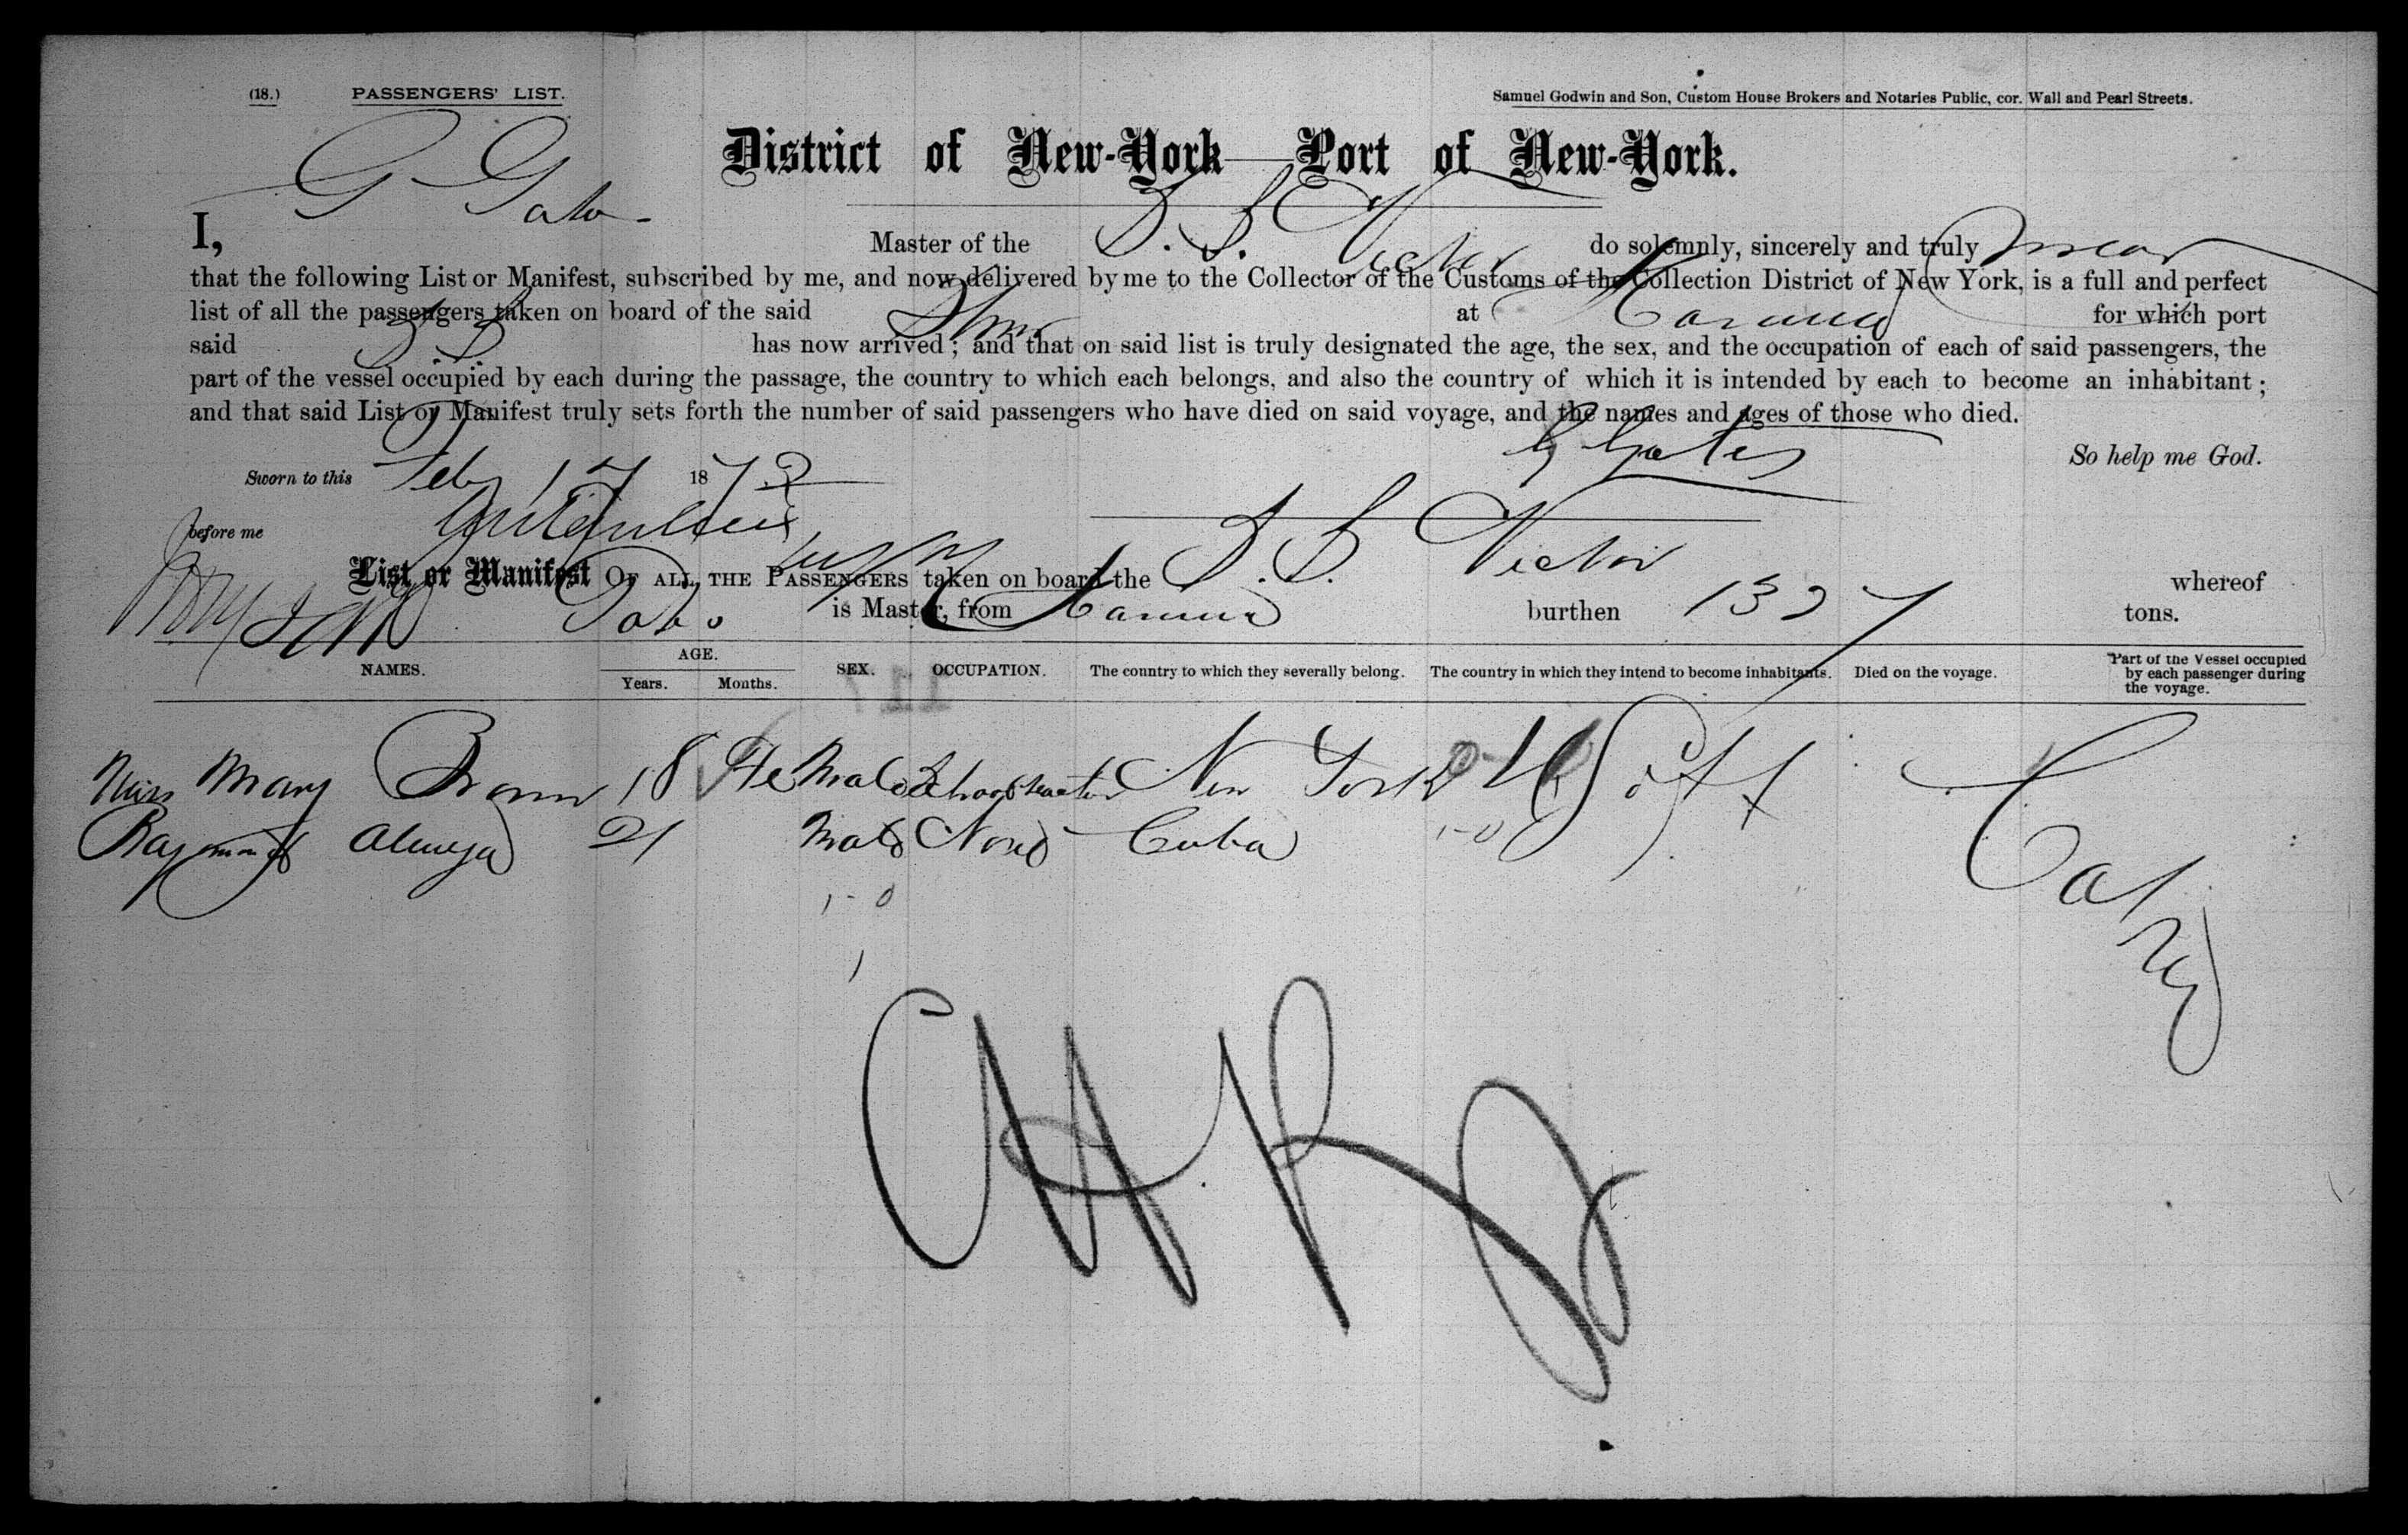 (18.) PASSENGERS' LIST.
Samuel Godwin and Son, Custom House Brokers and Notaries Public, cor. Wall and Pearl Streets.
District of New-York—Port of New-York.
I, G Gates Master of the S. S. Victor do solemnly, sincerely and truly swear
that the following List or Manifest, subscribed by me, and now delivered by me to the Collector of the Customs of the Collection District of New York, is a full and perfect
list of all the passengers taken on board of the said Stmr at Havana for which port
said S. S. has now arrived; and that on said list is truly designated the age, the sex, and the occupation of each of said passengers, the
part of the vessel occupied by each during the passage, the country to which each belongs, and also the country of which it is intended by each to become an inhabitant;
and that said List or Manifest truly sets forth the number of said passengers who have died on said voyage, and the names and ages of those who died.
So help me God.
Sworn to this Feby 17 1872 G Gates
before me
List or Manifest OF ALL THE PASSENGERS taken on board the S. S. Victor whereof
is Master, from Havana burthen 1327 tons.
NAMES. AGE. Years. Months. SEX. OCCUPATION. The country to which they severally belong. The country in which they intend to become inhabitants. Died on the voyage. Part of the Vessel occupied by each passenger during the voyage.
Miss Mary Brown 18 Female School teacher New York U S of A Cabin
21 Male None Cuba